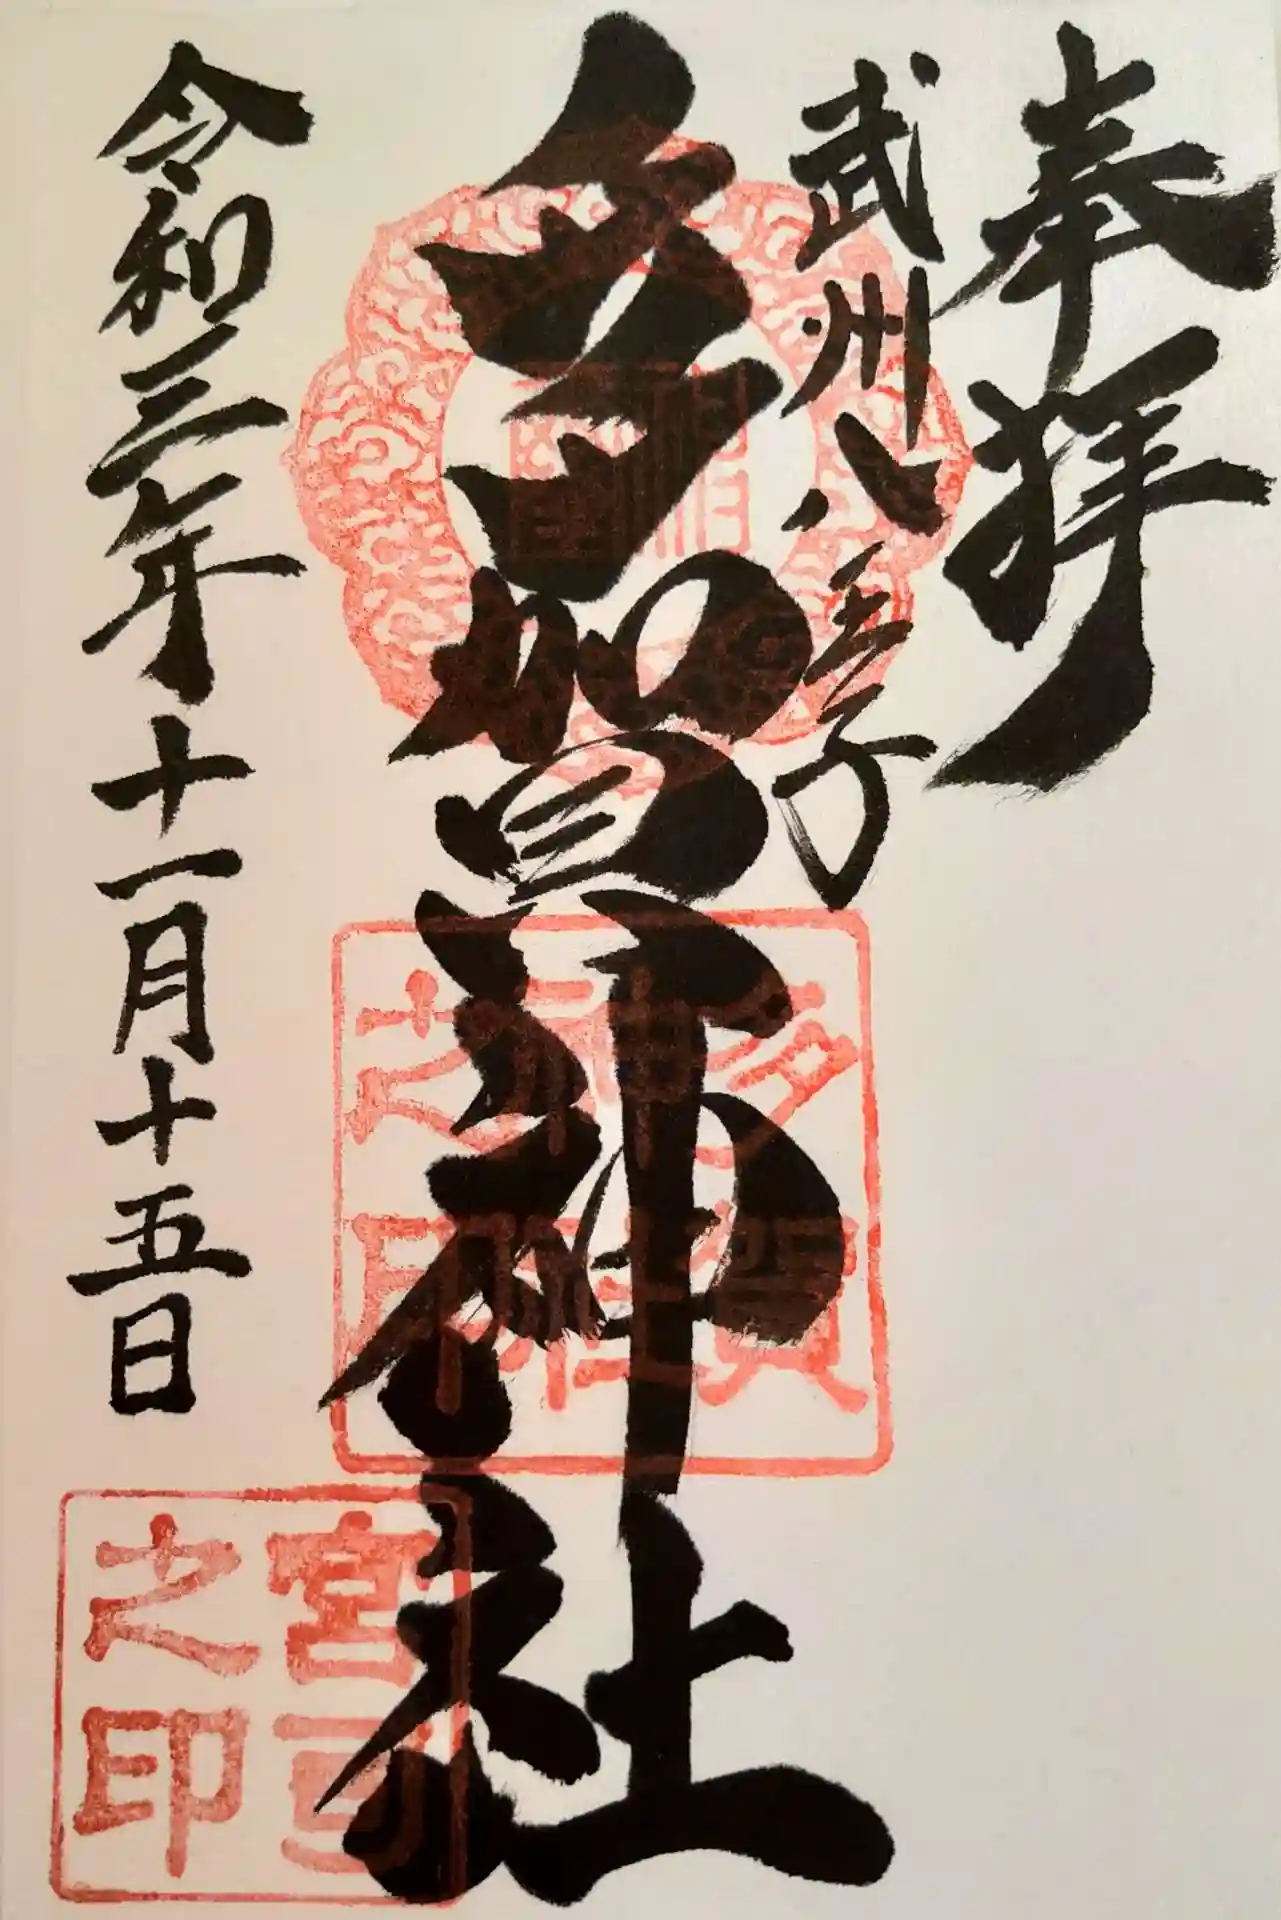 奉拝
武州八王子
多賀神社
令和三年十一月十五日
多賀神社之印
宮司之印